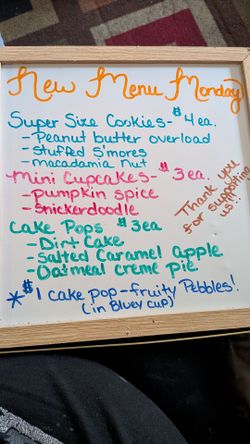 New Menu Monday
Super Size Cookies - $4 ea.
- Peanut butter overload
- Stuffed S'mores
- macadamia nut
Mini Cupcakes - $3 ea.
- pumpkin spice
- snickerdoodle
Cake Pops $3 ea
- Dirt Cake
- Salted Caramel apple
- Oatmeal creme pie
* $1 cake pop - fruity Pebbles!
(in Bluey cup)
Thank you
for supporting
us!!